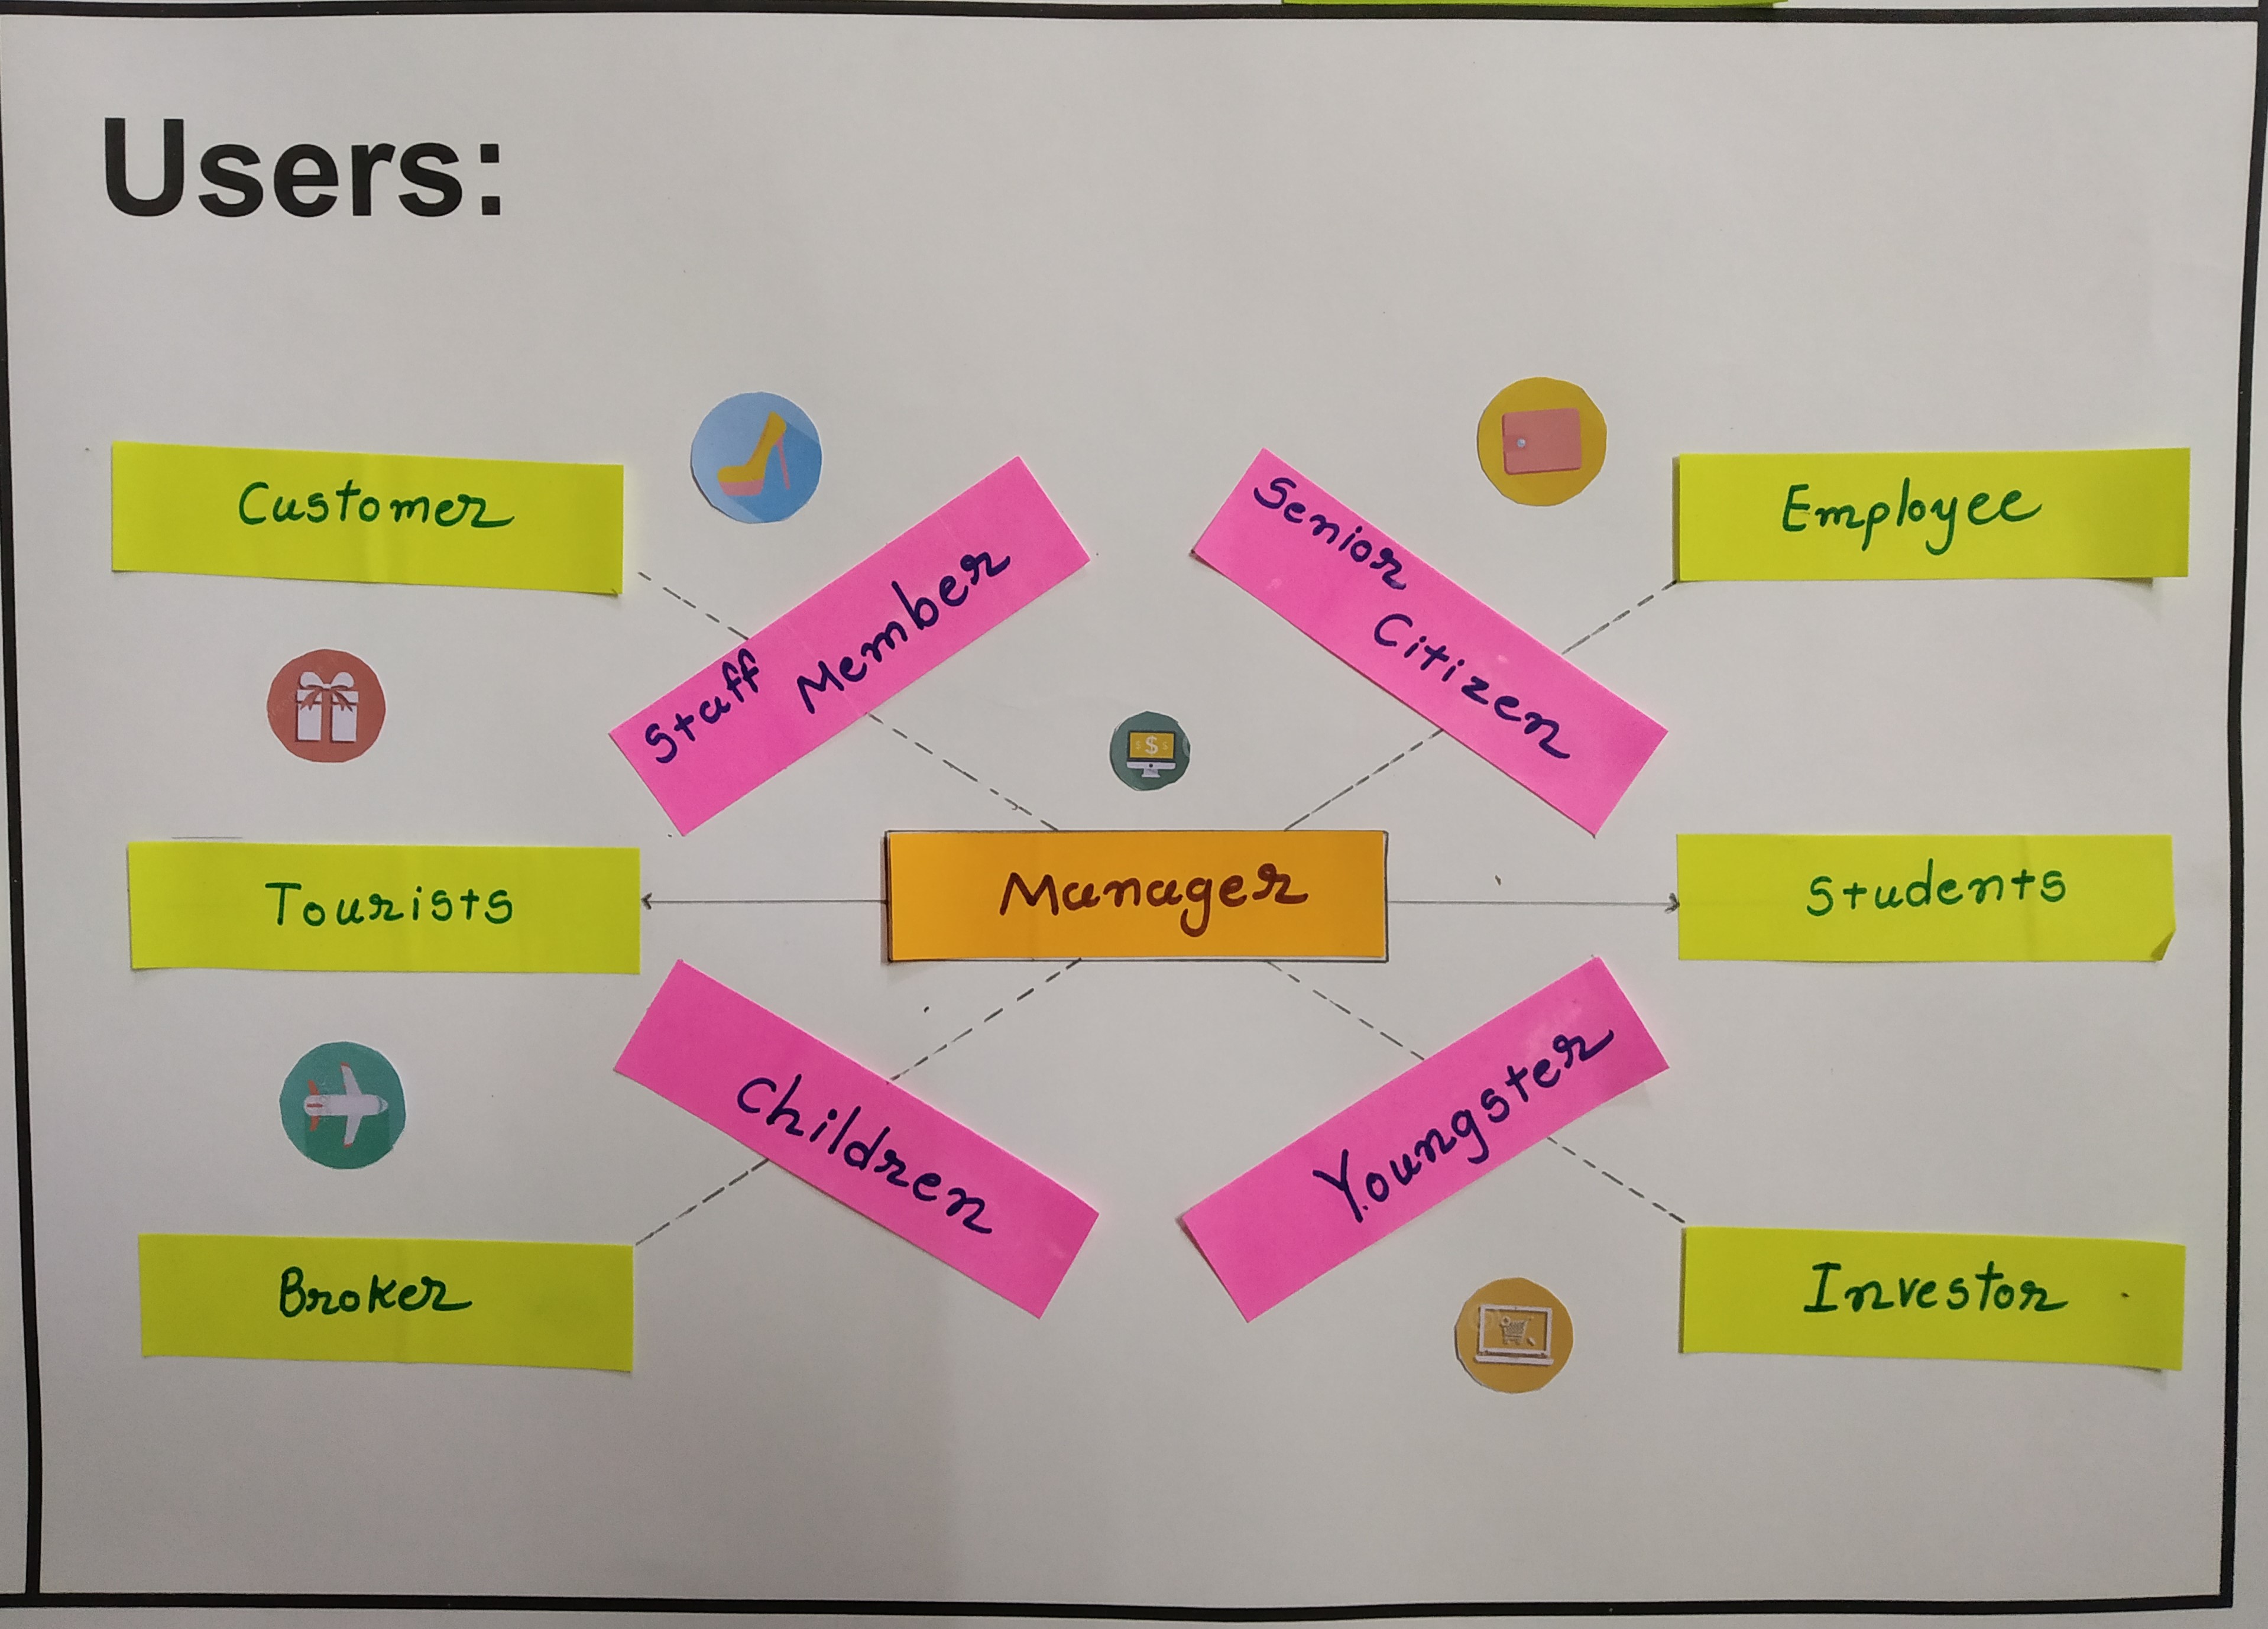 Users:
Customer
Staff Member
Senior Citizen
Employee
$ $ $
Tourists
Manager
Students
Children
Youngster
Broker
Investor